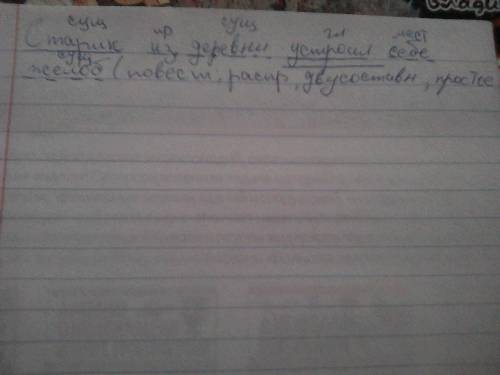 сущ пр сущ гл мест
Старик из деревни устроил себе
сущ
желоб (повест, распр, двусоставн, простое